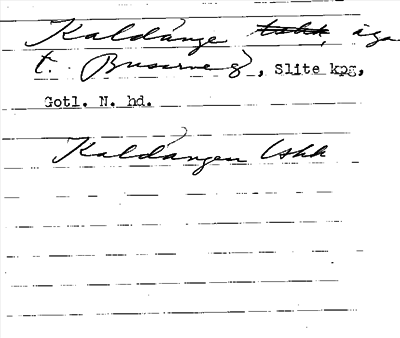 Kaldänge åga
t. Busarve 8, Slite kpg,
Gotl. N. hd.
Kaldängen Uskk